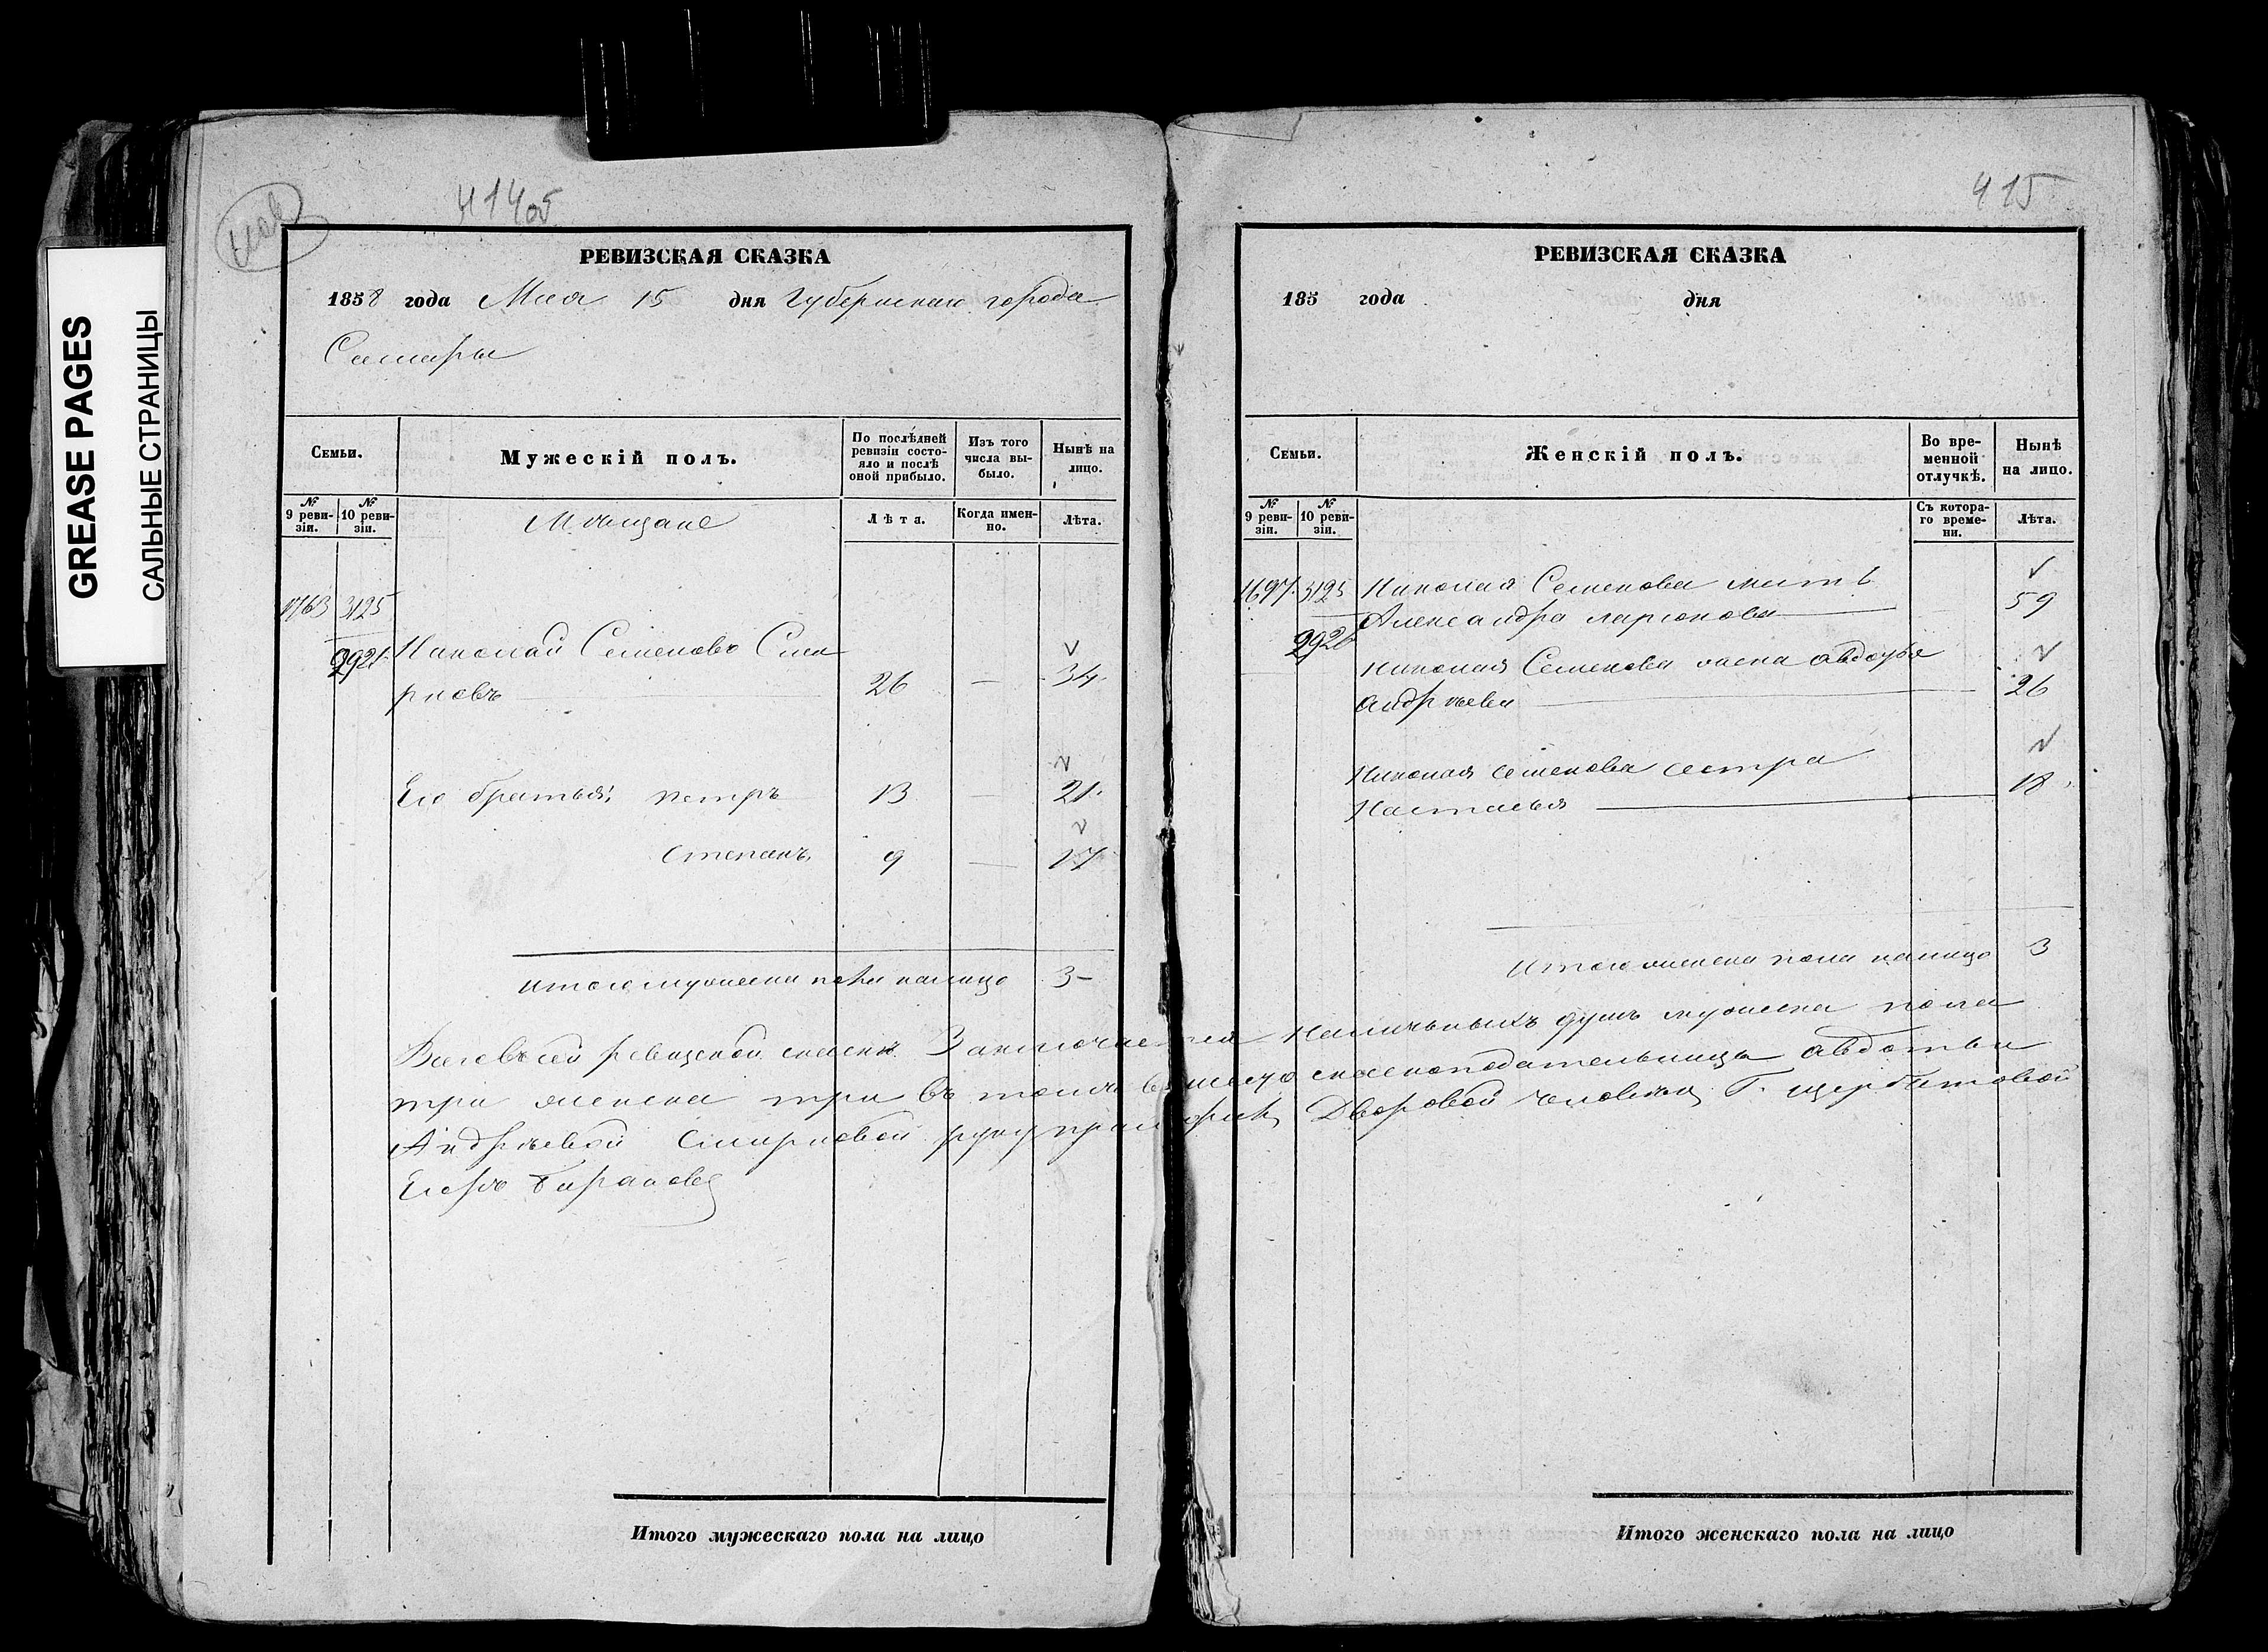 GREASE PAGES
САЛЬНЫЕ СТРАНИЦЫ
414об
РЕВИЗСКАЯ СКАЗКА
1858 года Мая 15 дня Губернскаго города
Самары
Семьи.
Мужескій полъ.
По послѣдней ревизіи состо-
яло и послѣ
оной прибыло.
Изъ того
числа вы-
было.
Нынѣ на
лицо.
№ 9 реви-
зіи.
№ 10 реви-
зіи.
Мѣщане
Лѣта.
Когда имен-
но.
Лѣта.
1763 3125
2921 Николай Семеновъ Сми
рновъ 26 — 34
Его братья: петръ 13 — 21
степанъ 9 — 17
итого мужеска пола налицо 3
415
РЕВИЗСКАЯ СКАЗКА
185 года дня
Семьи.
Женскій полъ.
Во вре-
менной
отлучкѣ.
Нынѣ
на лицо.
№ 9 реви-
зіи.
№ 10 реви-
зіи.
Съ котора-
го време-
ни.
Лѣта.
1697 3125 Николая Семенова мать
Александра ларионова 59
Николая Семенова жена авдотья
андрѣева 26
Николая семенова сестра
Настасья 18
Итого женска пола налицо 3
Всей ревизской сказкѣ Заключается Наличныхъ душъ мужеска пола
три женска три въ томъ вместо сказкоподательницы авдотьи
Андрѣевой Смирновой руку приложилъ Дворовой человѣкъ Г. щербатовой
Егоръ Барановъ
Итого мужескаго пола на лицо
Итого женскаго пола на лицо